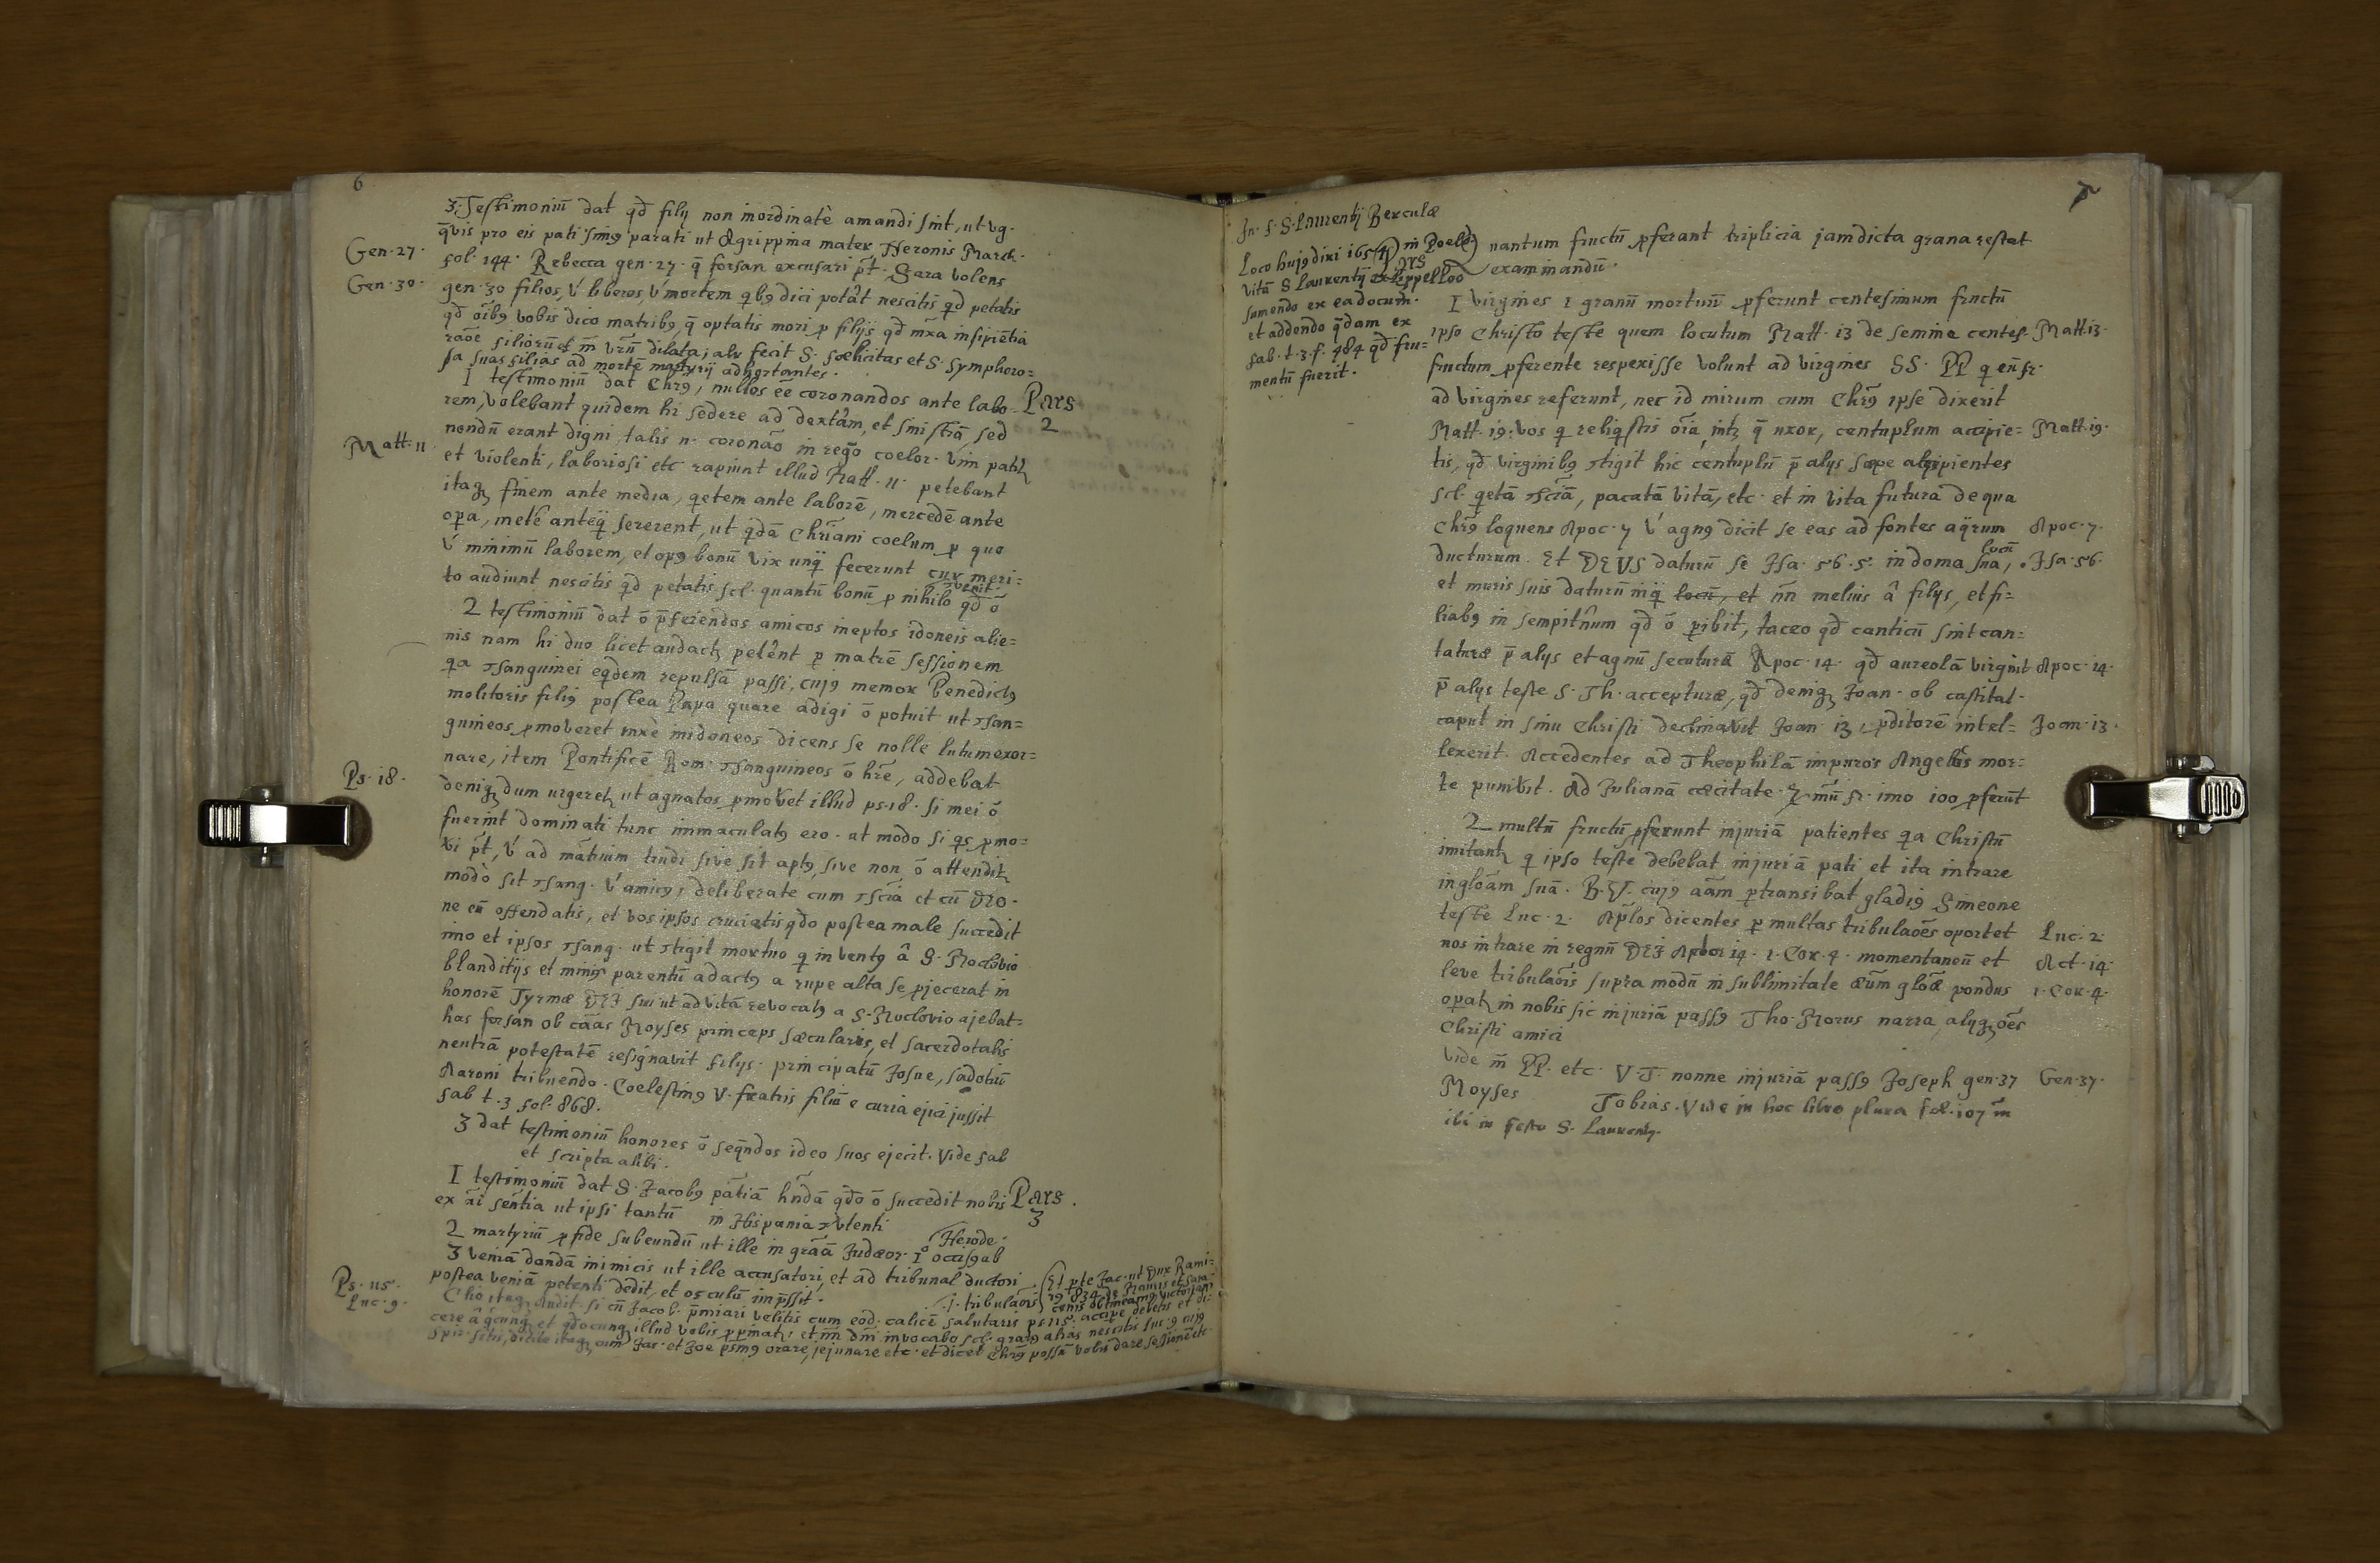 6
3. Testimoniū dat qđ filij non inordinatè amandi sint, ut vg.
q̄vis pro eis pati sim9 parati ut Agrippina mater Neronis March.
Gen. 27. fol. 144. Rebecca gen. 27. q̄ forsan excusari p̄t. Sara volens
Gen. 30. gen. 30 filios, v́ liberos, v́ mortem qb9 dici potât nescitis qđ petatis
qđ oīb9 vobis dico matrib9 q̄ optatis mori p filijs qđ mxa insipiētia
raōe filiorū et m̄ vrū dilata; alr fecit S. foelicitas et S. Symphoro=
sa suas filias ad mortē martyrij adhortantes.
I testimoniū dat Chr9, nullos ēē coronandos ante labo= Pars
rem, volebant quidem hi sedere ad dextâm, et sinistrā, sed 2
nondū erant digni, talis n. coronāo in regō coelor. vim patitʒ
Matt. 11. et violenti, laboriosi etc rapiunt illud Matt. 11. petebant
itaqʒ finem ante media, qetem ante laborē, mercedē ante
opa, metē anteq̄ sererent, ut qdā Chriani coelum p quo
v́ minimū laborem, et op9 bonū vix unq̄ fecerunt cur meri=
to audiunt nescitis qđ petatis scl. quantū bonū p nihilo qđ ō
venit.
2 testimoniū dat ō p̄ferendos amicos ineptos idoneis alie=
nis nam hi duo licet audactʒ petênt p matrē sessionem
qa ɔsanguinei eqdem repulsā passi, cuj9 memor Benedict9
molitoris fili9 postea Papa quare adigi ō potuit ut ɔsan=
guineos pmoveret mxè inidoneos dicens se nolle lutum exor=
nare, item Pontificē Rom. ɔsanguineos ō hrē, addebat
Ps. 18. deniqʒ dum urgeretʒ ut agnatos pmovet illud ps. 18. si mei ō
fuerint dominati tunc immaculat9 ero. at modo si qs pmo=
vi p̄t, v́ ad mātrium tradi sive sit apt9, sive non, ō attenditʒ
modò sit ɔsang. v́ amic9; deliberate cum ɔscīa et cū DEO.
ne eū offendatis, et vos ipsos cruciatis qđo postea male succedit
imo et ipsos ɔsang. ut ɔtigit mortuo q invent9 â S. Moclovio
blanditijs et minis parentū adact9 a rupe alta se pjecerat in
honorē Tyrmæ DEI sui ut ad vitā revocat9 a S. Moclovio ajebat=
has forsan ob cāas Moyses princeps sæcularis, et sacerdotalis
neutrā potestatē resignavit filijs. principatū Josue, sadotiū
Aaroni tribuendo. Coelestin9 V. fratris filiū e curia ejici jussit
fab t. 3 fol. 868.
3 dat testimoniū honores ō seq̄ndos ideo suos ejecit. Vide fab
et scripta alibi.
I testimoniū dat S. Jacob9 pātiā hn̄dā qđo ō succedit nobis Pars.
ex ri sentia ut ipsi tantū in Hispania 3
2 martyriū p fide subeundū ut ille in grāā Judæor. Iº occis9 ab
Herode.
3 veniā dandā inimicis ut ille accusatori, et ad tribunal ductori
postea veniā petenti dedit, et osculū imp̄ssit.
Ps. 115. Cho itaqʒ audit. si cū Jacob. p̄miari velitis cum eod. calicē salutaris ps 115. accipe debetis et di=
Luc. 9. cere â qcunqʒ et qđocunqʒ illud vobis ppinatʒ. et nn̄ dni invocabo
.i. tribulaōis
7
In f. S. Laurentij Berculæ
Loco huj9 dixi 165 in Poeld
Pars
vitā S Laurentij ex Lippelloo
sumendo ex eadocum.
et addendo q̄dam ex
fab. t. 3. f. 484 qđ fru=
mentū fuerit.
nantum fructū pferant triplicia jamdicta grana restat
examinandū.
I virgines ε granū mortuū pferunt centesimum fructū
ipso Christo teste quem locutum Matt. 13 de semine centes. Matt. 13.
fructum pferente respexisse volunt ad virgines SS. PP q eū fr.
ad virgines referunt, nec id mirum cum Chr9 ipse dixerit
Matt. 19: vos q reliqstis oīa, intʒ q̄ uxor, centuplum accipie= Matt. 19.
tis, qđ virginib9 ɔtigit hic centuplū p̄ alijs sæpe accipientes
scl. qetā ɔscīā, pacatā vitā, etc. et in vita futura de qua
Chr9 loquens Apoc. 7 v́ agn9 dicit se eas ad fontes aq̄rum Apoc. 7.
ducturum. Et DEUS daturū se Isa. 56. 5. in domo sua, locū Isa. 56.
et muris suis daturū inq̄ locū, et nn̄ melius â filijs, et fi=
liab9 in sempitn̂um qđ ō pibit, taceo qđ canticū sint can=
taturæ p̄ alijs et agnū secuturæ Apoc. 14. qđ aureolā virginit Apoc. 14.
p̄ alijs teste S. Th. accepturæ, qđ deniqʒ Joan. ob castitat.
caput in sinu Christi declinavit Joan 13, pditorē intel= Joan. 13.
lexerit. Accedentes ad Theophilā impuros Angelus mor=
te punivit. Ad Julianā cæcitate. mū fr. imo 100 pferūt
2 multū fructū pferunt injuriā patientes qa Christū
imitantʒ q ipso teste debebat injuriā pati et ita intrare
in glōam suā. B. V. cuj9 aām ptransibat gladi9 Simeone
teste Luc. 2. Apl̄os dicentes p multas tribulaōēs oportet Luc. 2.
nos intrare in regnū DEI Actor 14. 1. Cor. 4. momentaneū et Act. 14.
leve tribulaōis supra modū in sublimitate æūm glōæ pondus 1. Cor. 4.
opatʒ in nobis sic injuriā pass9 Tho. Morus narra, aliiqʒ oēs
Christi amici
vide m̄ PP. etc. V. T. nonne injuriā pass9 Joseph gen. 37 Gen. 37.
Moyses Tobias. Vide in hoc libro plura fol. 107 m̄
ibi in festo S. Laurentij.